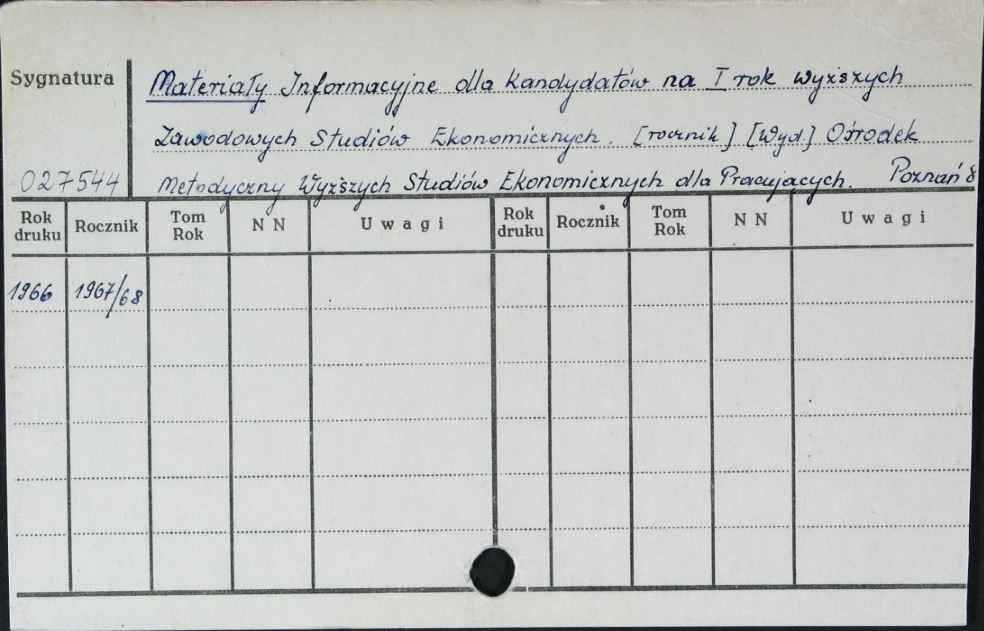 Sygnatura
Materiały Informacyjne dla kandydatów na I rok Wyższych
Zawodowych Studiów Ekonomicznych. [rocznik] [Wyd.] Ośrodek
027544 Metodyczny Wyższych Studiów Ekonomicznych dla Pracujących. Poznań 8
Rok druku Rocznik Tom Rok N N Uwagi Rok druku Rocznik Tom Rok N N Uwagi
1966 1967/68